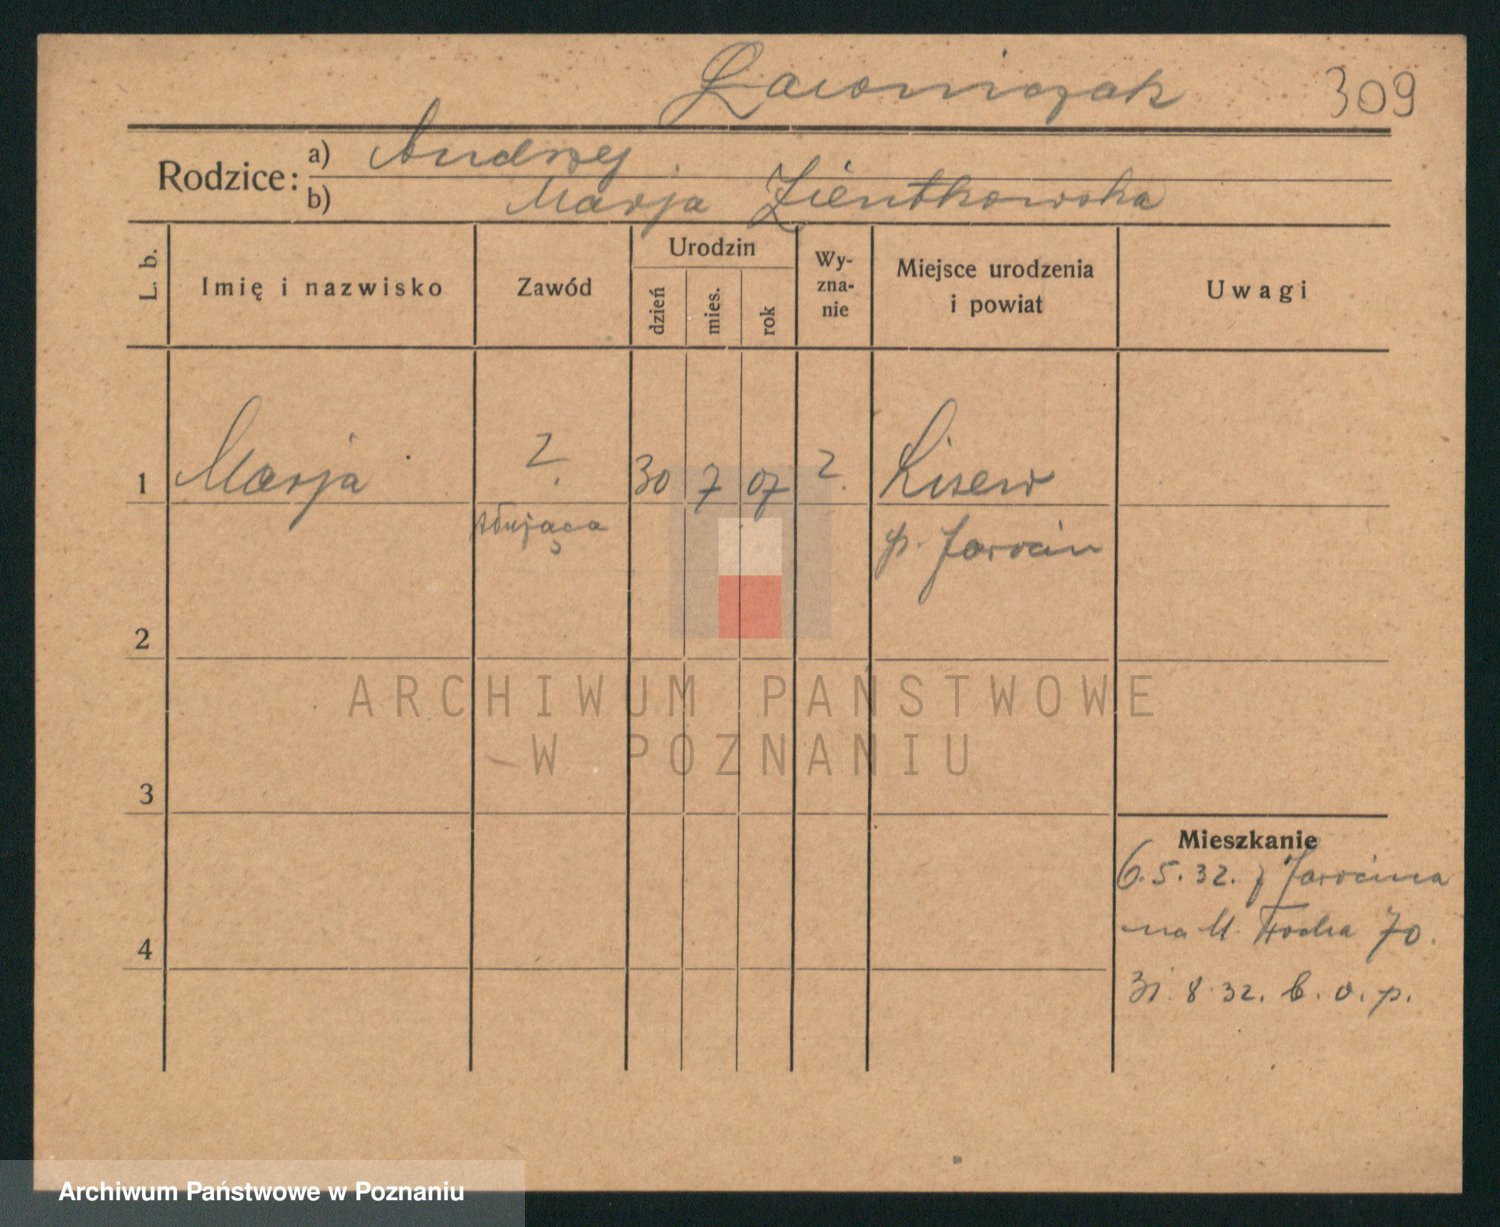 Ławniczak 309
Rodzice: a) Andrzej
b) Marja Zientkowska
L. b. Imię i nazwisko Zawód Urodzin dzień mies. rok Wy-zna-nie Miejsce urodzenia i powiat Uwagi
1 Marja 30 7 07 Lisew
służąca p. Jarocin
2
ARCHIWUM PAŃSTWOWE
W POZNANIU
3
Mieszkanie
6.5.32. z Jarocina
na M. Focha 70.
4
31.8.32. b. o. p.
Archiwum Państwowe w Poznaniu